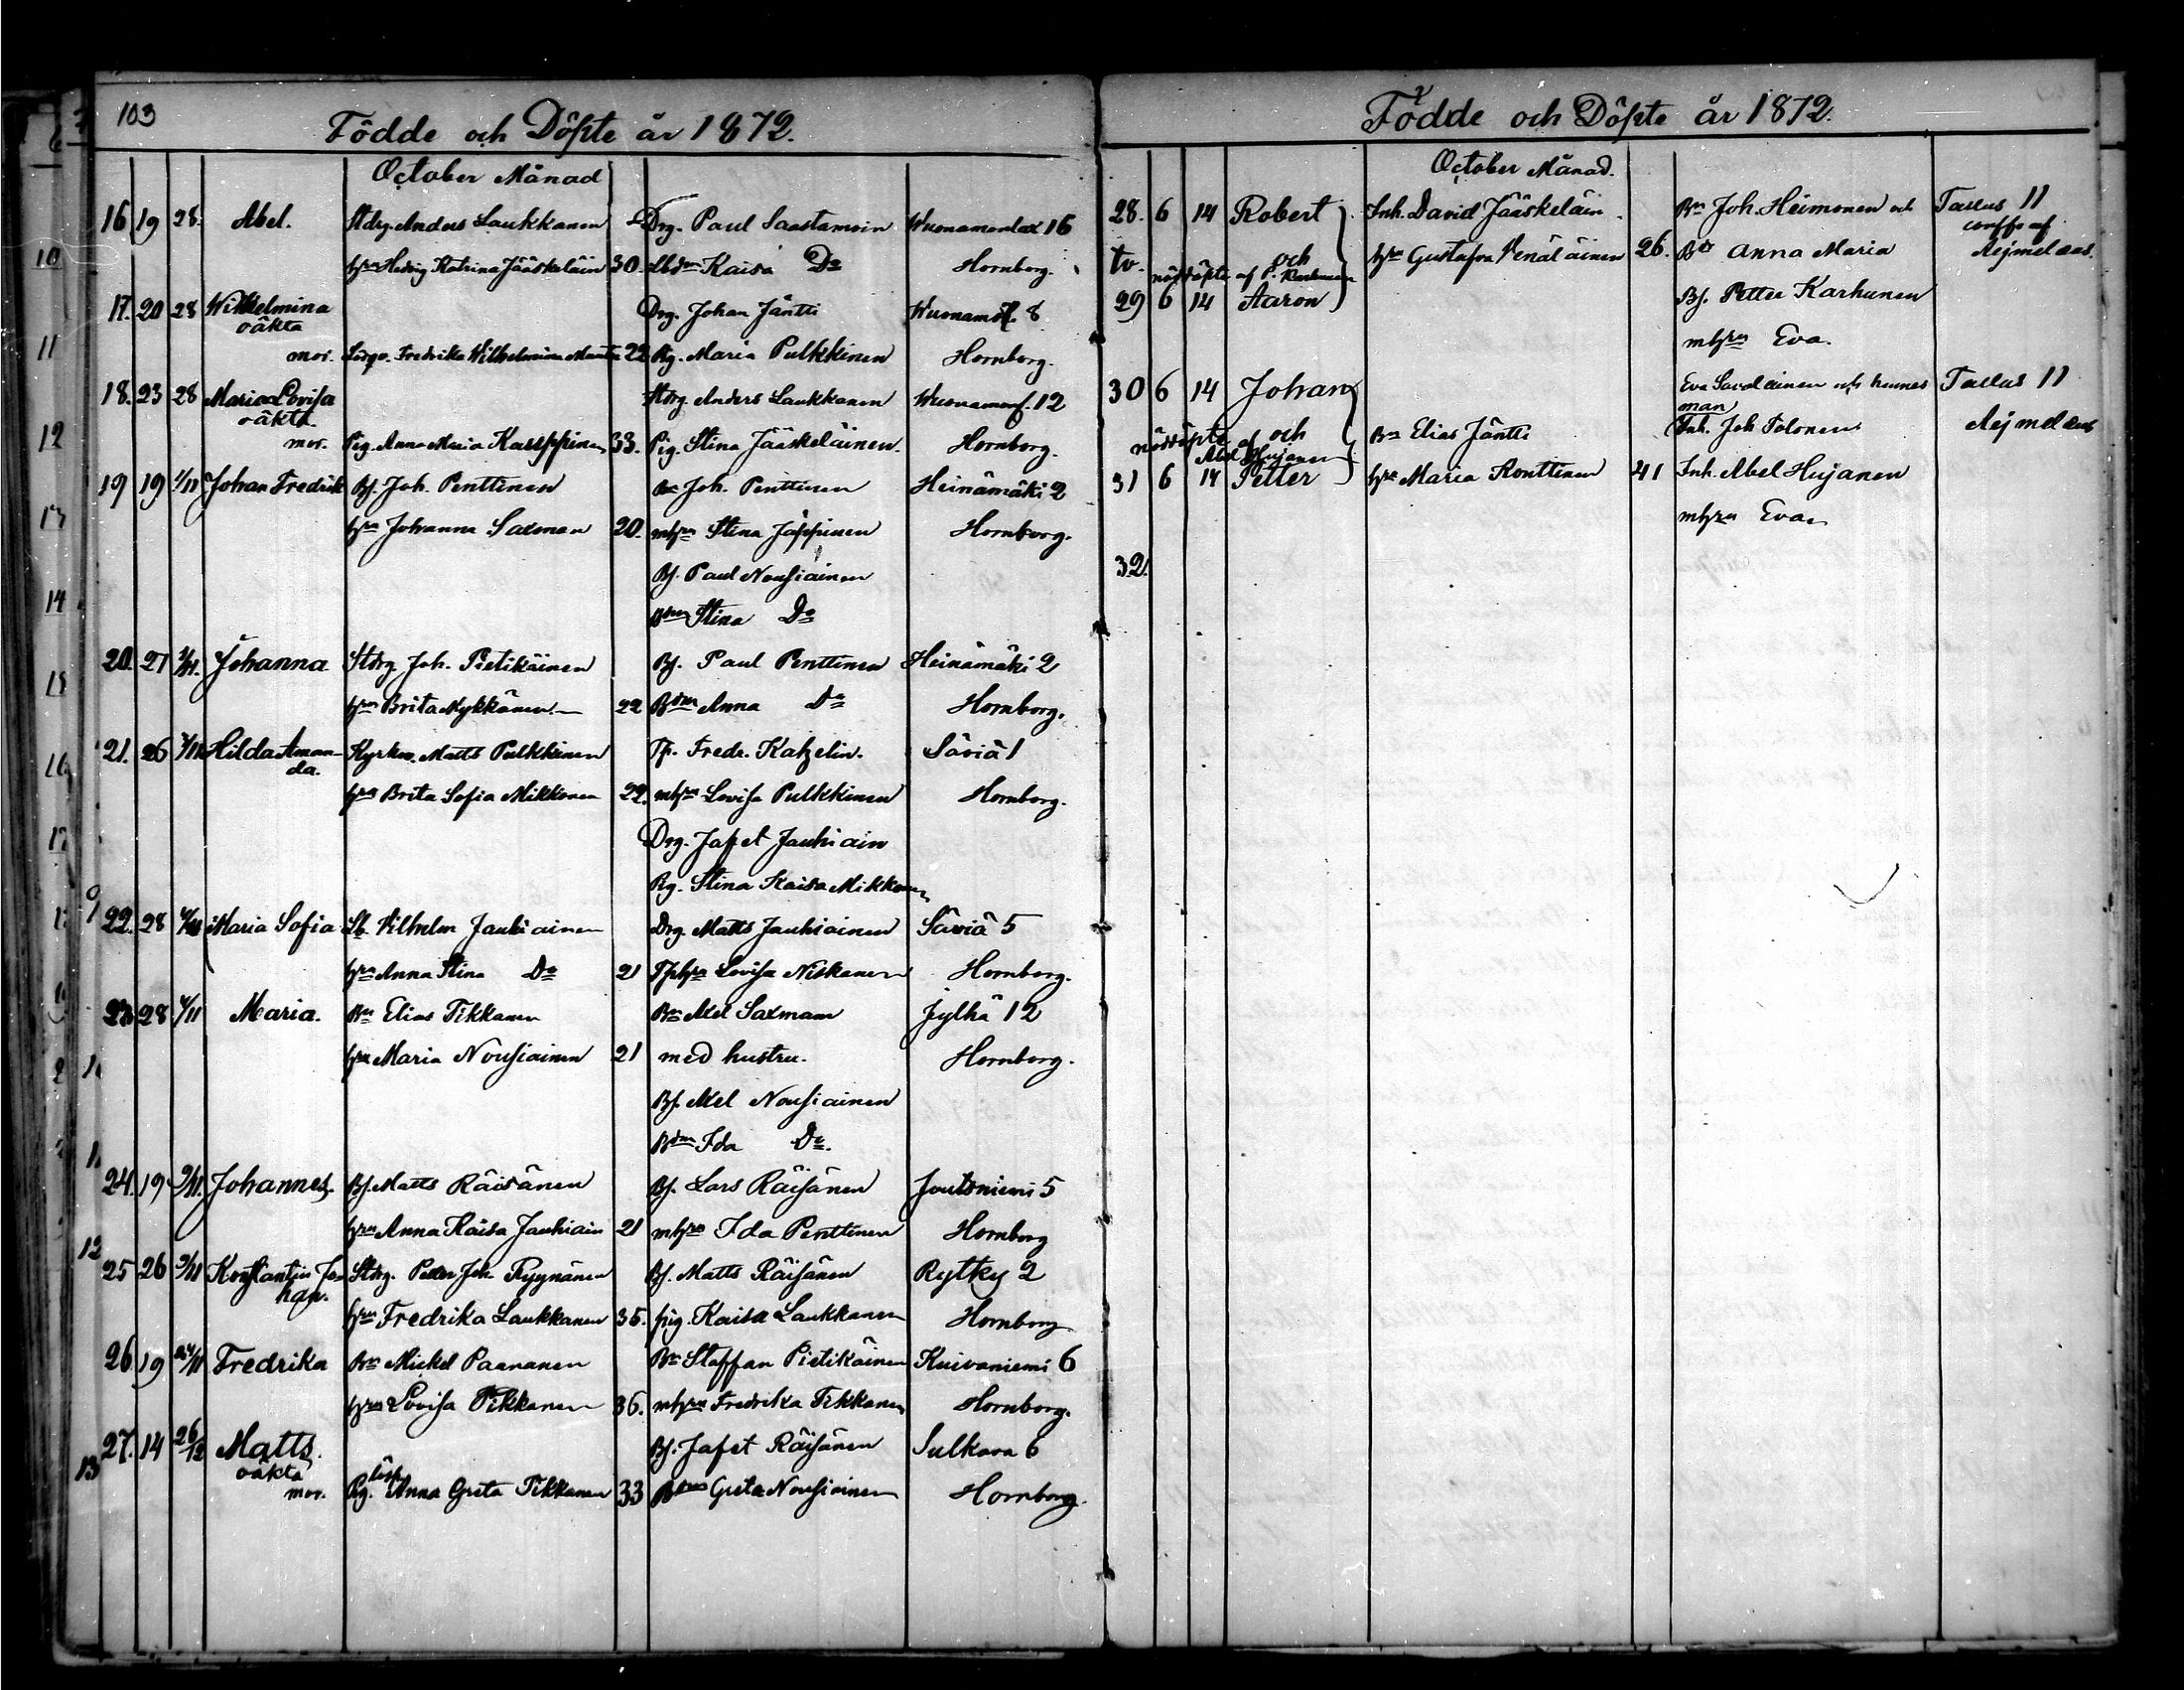 103
Födde och Döpte år 1872.
October Månad
16 19 28. Abel. Stdrg. Anders Laukkanen Drg. Paul Saastamoin Wuonamonlax 16
hru Hedvig Katrina Jääskeläin 30. Kaisa Do Hornborg.
17. 20 28 Wilhelmina Drg. Johan Jäntti 8
oäkta
mor. Fredrika Wilhelmina 22 Pig. Maria Pulkkinen Hornborg.
18. 23 28 Maria Lovisa Stdrg. Anders Laukkanen 12
oäkta
mor. Pig. Anna Maria Karppinen 33. Pig. Stina Jääskeläinen Hornborg.
19 19 1/11 Johan Fredrik Bf. Joh. Penttinen Bn Joh. Penttinen Heinämäki 2
hru Johanna Saxman 20. mhru Stina Jäppinen Hornborg.
Bf. Paul Nousiainen
Bdtr Stina Do
20. 27 Johanna Stdrg Joh. Pietikäinen Bf. Paul Penttinen Heinämäki 2
hru Brita Nykkänen 22 Anna Do Hornborg.
21. 26 Hilda Aman- Kyrkov. Matts Pulkkinen Tp. Fredr. Katzelin. Säviä 1
da.
hru Brita Sofia Mikkonen 22. mhru Lovisa Pulkkinen Hornborg.
Drg. Jafet Jauhiain
Pig. Stina Kaisa Mikkonen
22. 28 Maria Sofia Lb. Vilhelm Jauhiainen Drg. Matts Jauhiainen Säviä 5
hru Anna Stina Do 21 Tphru Lovisa Niskanen Hornborg.
23 28 4/11 Maria. Bn Elias Tikkanen Bn Axel Saxman Jylhä 12
hru Maria Nousiainen 21 med hustru. Hornborg.
Bf. Axel Nousiainen
Ida Do.
24. 19 9/11. Johannes. Bf. Matts Räisänen Bf. Lars Räisänen Joutsniemi 5
hru Anna Kaisa Jauhiain 21 mhru Ida Penttinen Hornborg
25 26 9/11 Konstantin Jo- Stdrg. Petter Joh. Ryynänen Bf. Matts Räisänen Rytky 2
han.
hru Fredrika Laukkanen 35. pig. Kaisa Laukkanen Hornborg
26 19 24/11 Fredrika Bn Mickel Paananen Bn Staffan Pietikäinen Kuivaniemi 6
hru Lovisa Tikkanen 36. mhru Fredrika Tikkanen Hornborg.
27. 14 26/12 Matts. Bf. Jafet Räisänen Sulkava 6
oäkta
mor. Pig. Anna Greta Tikkanen 33 Greta Nousiainen Hornborg.
Födde och Döpte år 1872.
October Månad.
28. 6 14 Robert Inh. David Jääskeläin Bn Joh. Heimonen och Taxlus 11
tv. och hru Gustafva Venäläinen 26. Anna Maria
nöddöpte af P.
29 6 14 Aaron Bf. Petter Karhunen
mhru Eva.
30 6 14 Johan Eva Savolainen och hennes Taxlus 11
man
nöddöpte af och Bn Elias Jäntti Inh. Joh Tolonen
Abel Hujanen
31 6 14 Petter hru Maria Ronttinen 41 Inh. Abel Hujanen
mhru Eva
32.